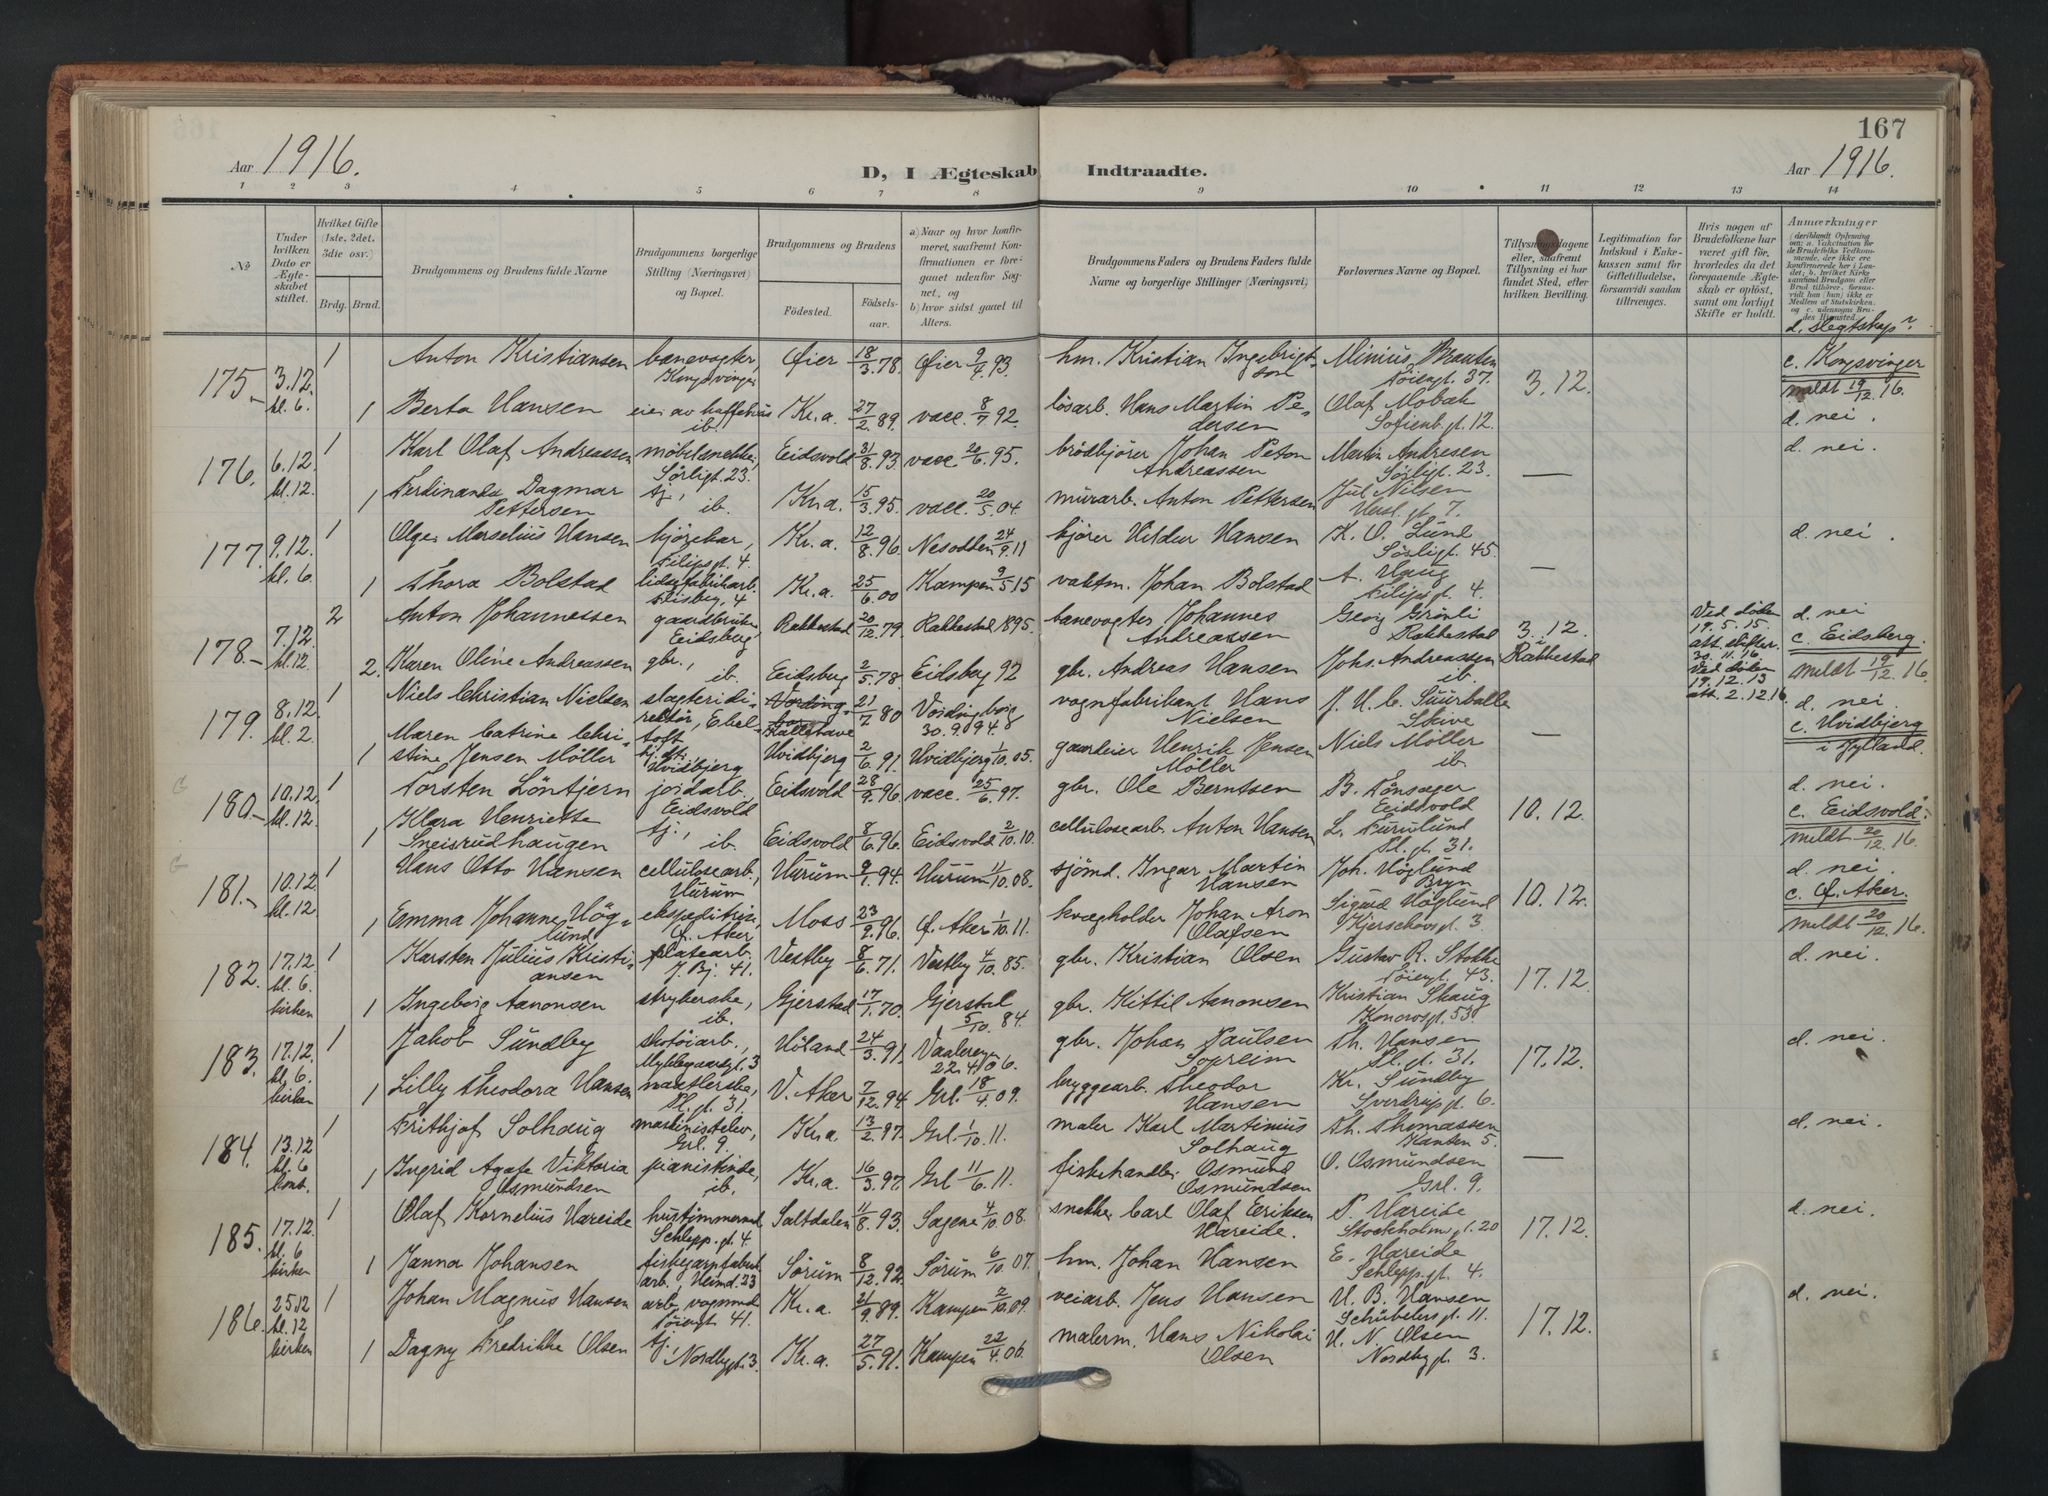 Aar 1916.
D, I Ægteskab Indtraadte.
167
Aar 1916.
1 2 3 4 5 6 7 8 9 10 11 12 13 14
№
Under hvilken Dato er Ægteskabet stiftet.
Hvilket Gifte (1ste, 2det, 3die osv.)
Brdg. Brud.
Brudgommens og Brudens fulde Navne
Brudgommens borgerlige Stilling (Næringsvei) og Bopæl.
Brudgommens og Brudens
Fødested. Fødselsaar.
a) Naar og hvor konfirmeret, saafremt Konfirmationen er foregaaet udenfor Sognet, og
b) hvor sidst gaaet til Alters.
Brudgommens Faders og Brudens Faders fulde Navne og borgerlige Stillinger (Næringsvei)
Forlovernes Navne og Bopæl.
Tillysningsdagene eller, saafremt Tillysning ei har fundet Sted, efter hvilken Bevilling.
Legitimation for Indskud i Enkekassen samt for Giftetilladelse, forsaavidt saadan tiltrænges.
Hvis nogen af Brudefolkene har været gift før, hvorledes da det foregaaende Ægteskab er opløst, samt om lovligt Skifte er holdt.
Anmærkninger
d. Slegtskap?
175 3.12. kl. 6. 1 Anton Kristiansen banevogter, Kongsvinger Øier 18/3 78. Øier 9/4 93 hm. Kristian Ingebrigtson Minius Braaten Tøiengt. 37. 3.12. c. Kongsvinger meldt 19/12 16.
1 Berta Hansen eier av kaffehus ib. Kr.a. 27/2 89. vacc. 8/7 92. løsarb. Hans Martin Pedersen Olaf Mobæk Sofienb.gt. 12. d. nei.
176. 6.12. kl. 12. 1 Karl Olaf Andreassen møbelsnekker, Sørligt. 23. Eidsvold 31/8 93 vacc 20/6 95. brødkjører Johan Peton Andreassen Martin Andresen Sørligt. 23. — d. nei.
1 Ferdinanda Dagmar Pettersen tj., ib. Kr.a. 15/3 95. vacc. 20/5 04. murarb. Anton Pettersen Jul. Nilsen
177. 9.12. kl. 6. 1 Olger Marselius Hansen kjørekar, Filipsgt. 4 Kr.a. 12/8 96. Nesodden 24/9 11 kjører Hildur Hansen K. O. Lund Sørligt. 45. — d. nei.
1 Thora Bolstad Kr.a. 25/6 00 Kampen 9/5 15 vaktm. Johan Bolstad A. Haug Filipsgt. 4.
178. 7.12. kl. 12. 2 Anton Johannessen gaardbruker Eidsberg Rakkestad 20/12 79. Rakkestad 1895. banevogter Johannes Andreassen Georg Grønli Rakkestad 3.12. i Rakkestad Ved døden 19.5.15. att. skifter. 30.11.16 d. nei c. Eidsberg.
2. Karen Oline Andreassen gbr., ib. Eidsberg 2/5 78. Eidsberg 92 gbr. Andreas Hansen Johs. Andreassen ib. Ved døden 19.12.13 att. 2.12.16. meldt 19/12 16.
179. 8.12. kl. 2. 1 Niels Christian Nielsen slagteridirektør, Ebeltoft Kallehave 21/7 80 Vordingborg 30.9.94. vognfabrikant Hans Nielsen J. H. C. Suurballe Skive — d. nei. c. Hvidbjerg i Jylland.
1 Maren Catrine Christine Jensen Møller Hvidbjerg Hvidbjerg 2/6 91. Hvidbjerg 1/10 05. gaardeier Henrik Jensen Møller Niels Møller ib.
180. 10.12. kl. 12. 1 Torsten Løntjern jordarb., Eidsvold Eidsvold 28/9 96. vacc. 25/6 97. gbr. Ole Berntsen B. Tonsager Eidsvold 10.12. d. nei. c. Eidsvold.
1 Klara Henriette Sneisrudhaugen tj., ib. Eidsvold 8/6 96. Eidsvold 2/10 10. cellulosearb. Anton Hansen L. Furulund Pl. gt. 31. meldt 20/12 16.
181. 10.12 kl. 12 1 Hans Otto Hansen cellulosearb., Hurum Hurum 9/1 94. Hurum 11/10 08. sjømd. Ingar Martin Hansen Joh. Høglund Bryn 10.12. d. nei. c. Ø. Aker.
1 Emma Johanne Høglund ekspeditrise, Ø. Aker. Moss 23/9 96. Ø. Aker 1/10 11. kvægholder Johan Aron Olafsen Sigurd Høglund Kjerschowsgt. 3 meldt 20/12 16.
182. 17.12 kl. 6. kirken 1 Karsten Julius Kristiansen platearb. J. Bj. 41. Vestby 8/6 71. Vestby 4/10 85. gbr. Kristian Olsen Gustav R. Stokke Tøiengt. 43. 17.12. d. nei.
1 Ingeborg Aanonsen strykerske, ib. Gjerstad 17/1 70. Gjerstad 5/10 84. gbr. Kittil Aanonsen Kristian Skaug Konowsgt. 53.
183. 17.12. kl. 6. kirken 1 Jakob Sundby skotøiarb., Høland 24/3 91. Vaalerengen 22.4.06. gbr. Johan Paulsen Th. Hansen Pl. gt. 31. 17.12. d. nei.
1 Lilly Theodora Hansen Pl. gt. 31. V. Aker 7/12 94. Grl. 18/4 09. bryggearb. Theodor Hansen Kr. Sundby Sverdrupsgt. 6.
184. 13.12 kl. 6 kont. 1 Frithjof Solhaug maskinistelev, Grl. 9. Kr.a. 13/2 97. Grl. 1/10 11. maler Karl Martinius Solhaug Th. Thomassen 5. — d. nei.
1 Ingrid Agate Viktoria Osmundsen pianistinde, ib. Kr.a. 16/3 97. Grl 11/6 11. fiskehandler Osmund Osmundsen O. Osmundsen Grl. 9.
185. 17.12. kl. 6 kirken 1 Olaf Kornelius Hareide hustømmermd. Schlepp. gt. 4. Saltdalen 11/8 93. Sagene 4/10 08. snekker Carl Olaf Eriksen Hareide. P. Hareide Stockholmsgt. 20 17.12. d. nei.
1 Janna Johansen fiskegarnfabrikarb., Heimd. 23 Sørum 8/12 92. Sørum 6/10 07. hm. Johan Hansen E. Hareide Schlepp.gt. 4.
186. 25.12 kl. 12 kirken 1 Johan Magnus Hansen arb. vognmd Tøiengt 41. Kr.a. 21/9 89. Kampen 2/10 09. veiarb. Jens Hansen H. B. Hansen Schübelersgt. 11. 17.12. d. nei.
1 Dagny Fredrikke Olsen tj., Nordbygt. 3 Kr.a. 27/5 91. Kampen 22/4 06. malerm. Hans Nikolai Olsen H. N. Olsen Nordbygt. 3.